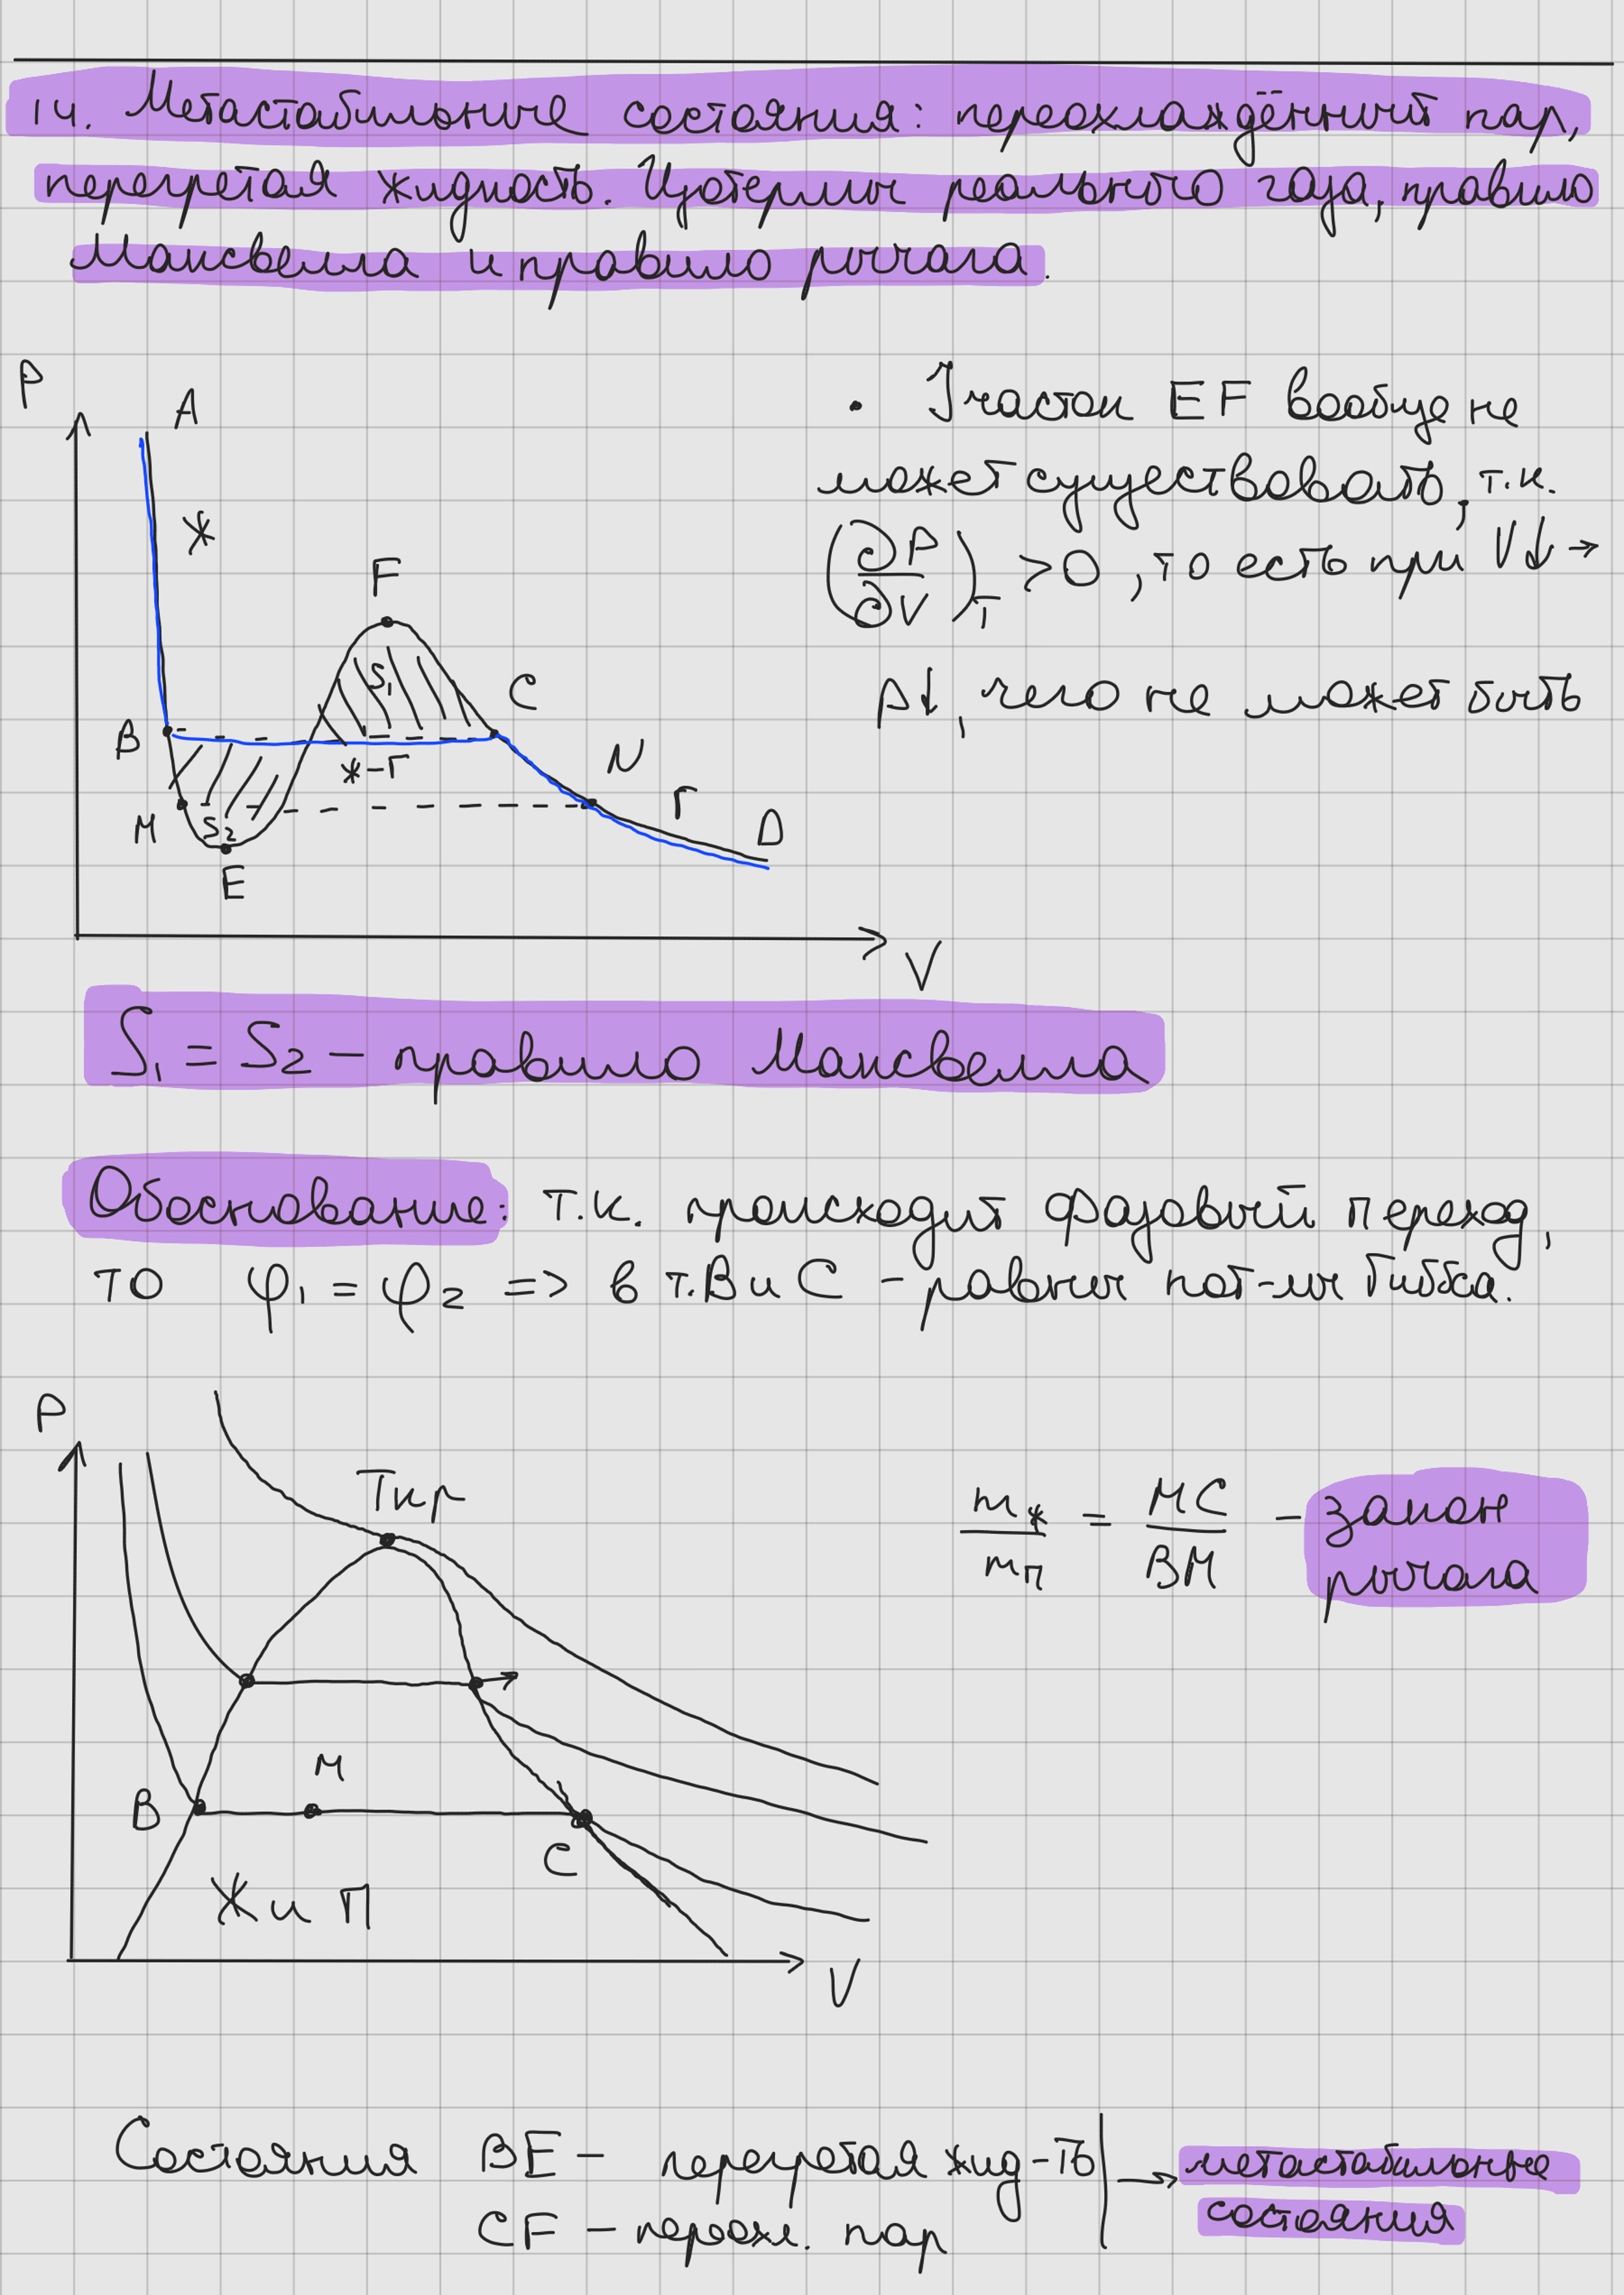 14. Метастабильные состояния: переохлаждённый пар,
перегретая жидкость. Изотермы реального газа, правило
Максвелла и правило рычага.
P
A
Ж
F
S₁
C
B
Ж-Г
N
Г
M
S₂
D
E
V
• Участок EF вообще не
может существовать, т.к.
(∂P/∂V)_T >0, то есть при V↓ →
P↓, чего не может быть
S₁ = S₂ - правило Максвелла
Обоснование: т.к. происходит фазовый переход,
то φ₁ = φ₂ => в т.B и C - равны пот-лы Гиббса.
P
Tкр
M
B
C
Ж и П
V
mж/mп = MC/BM - закон
рычага
Состояния BE - перегретая жид-ть → метастабильные
CF - переохл. пар состояния